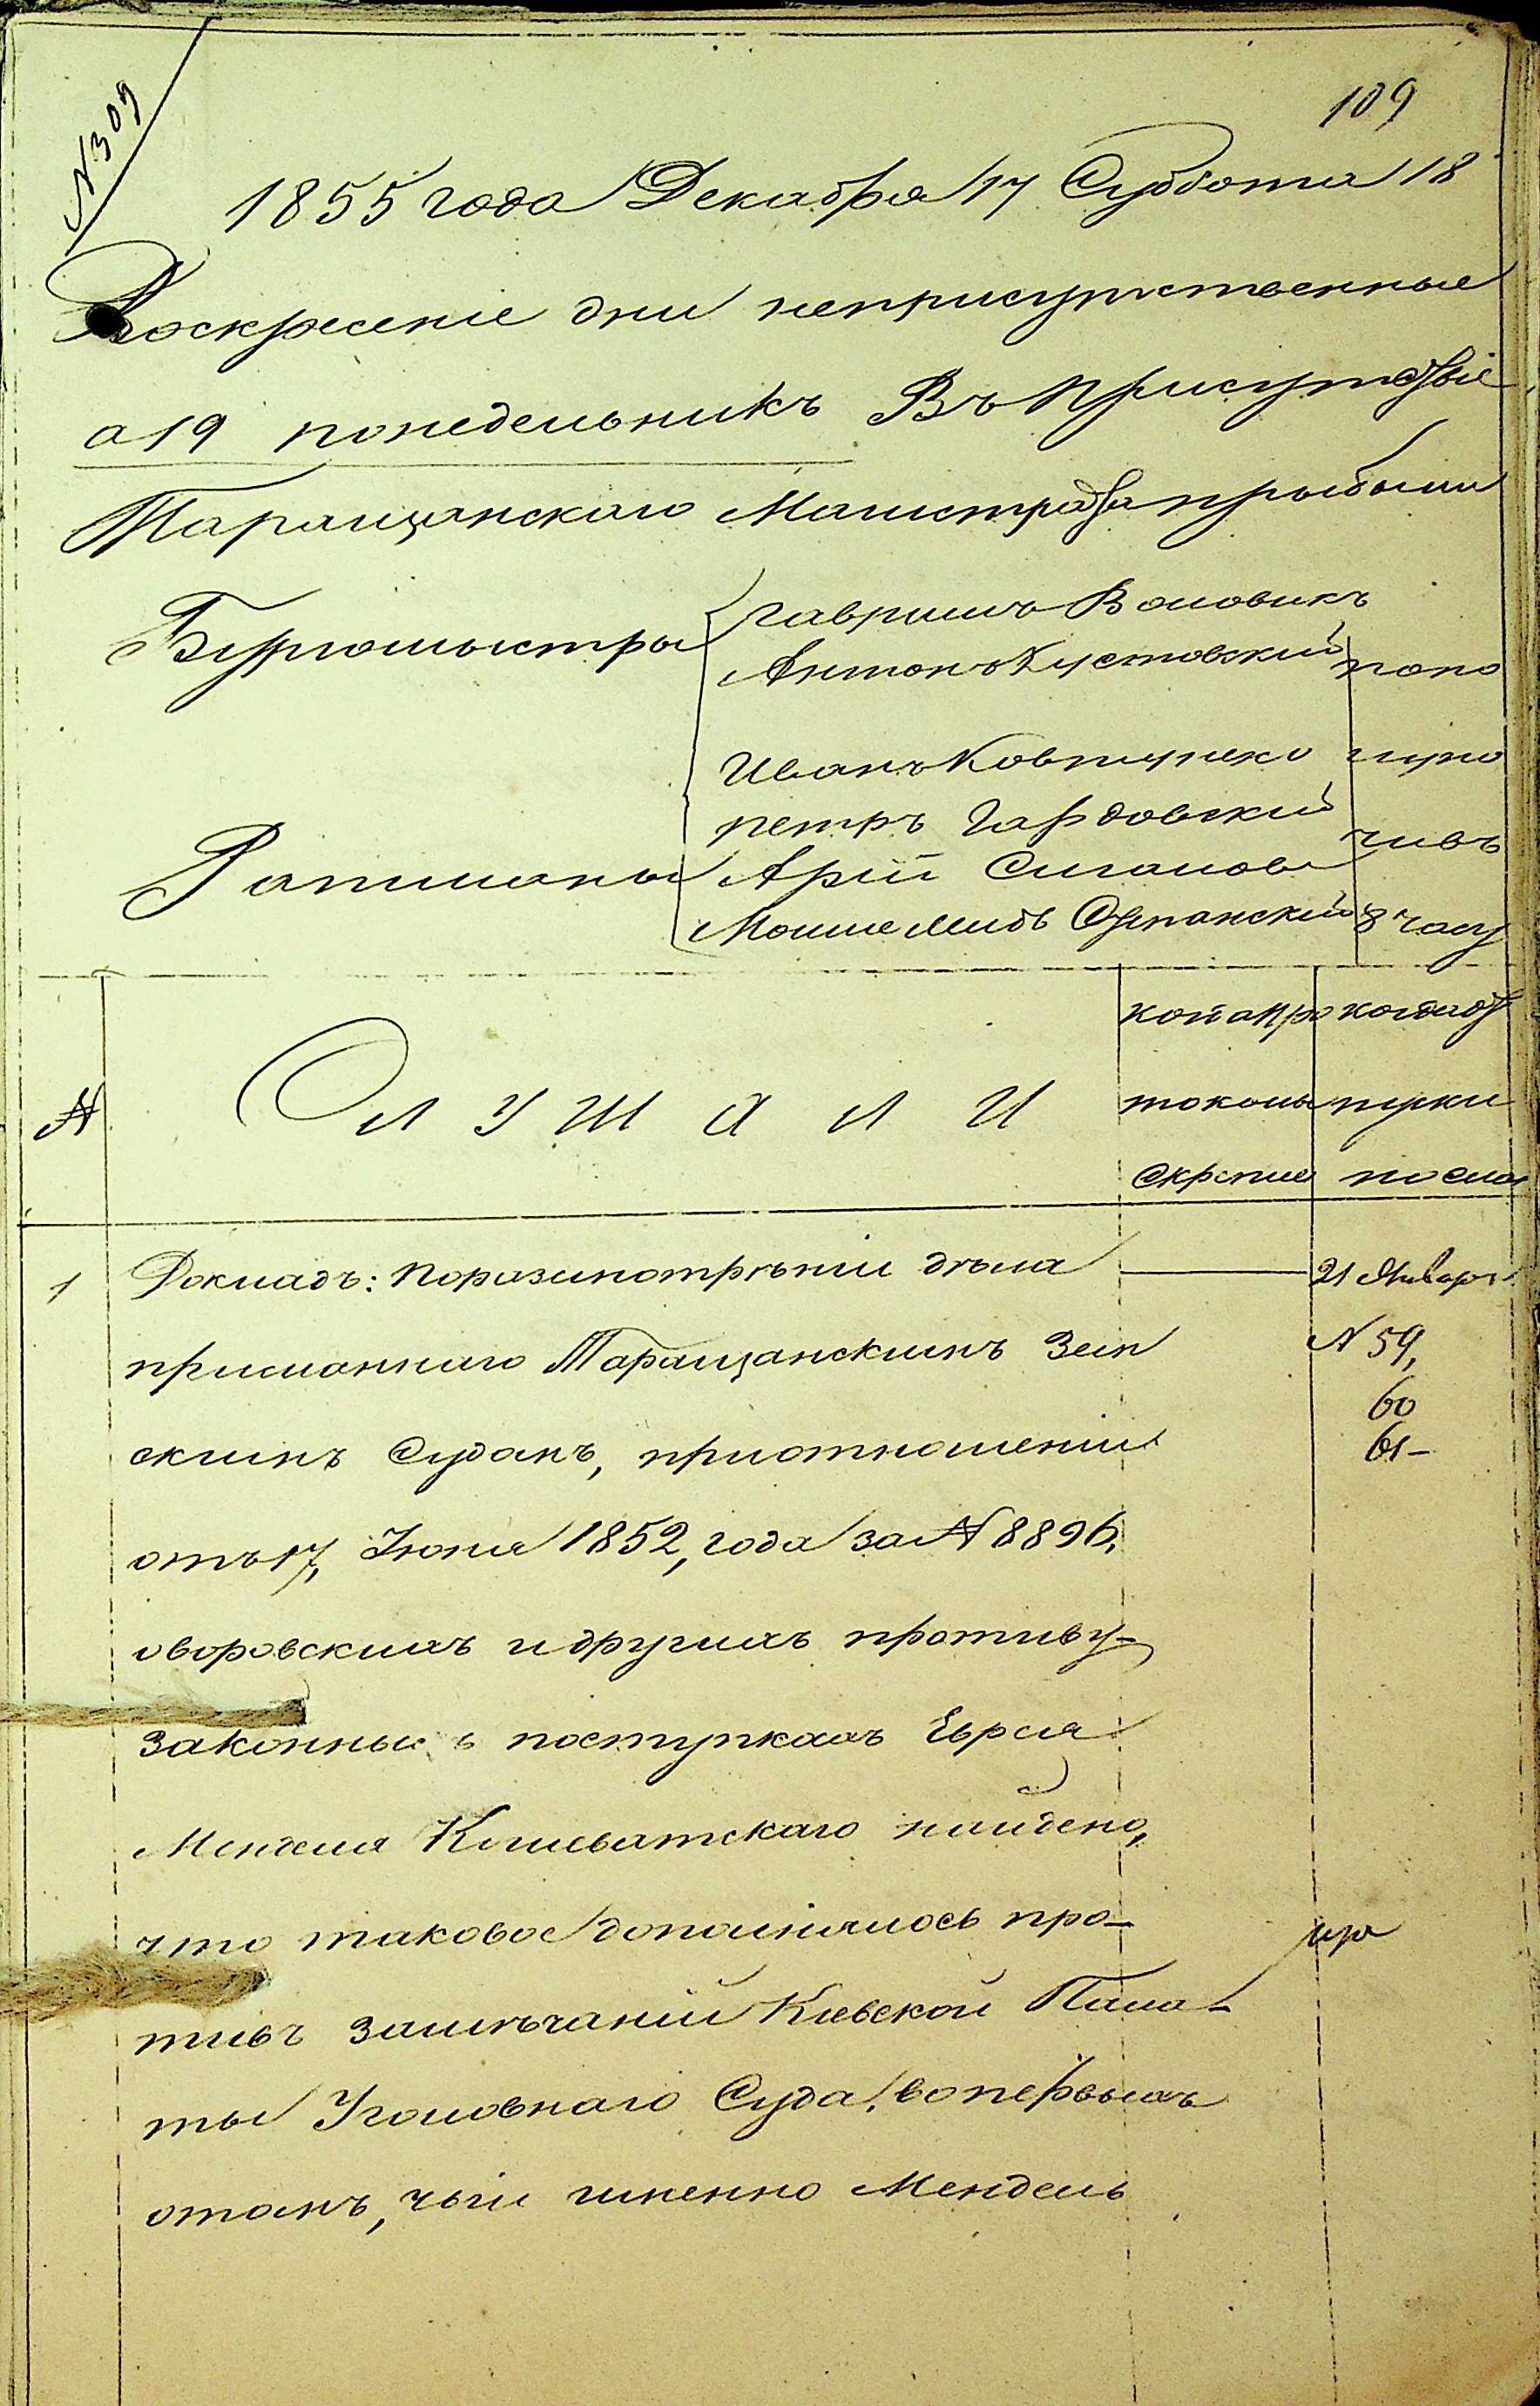 № 309
109
1855 года Декабря 17 Суббота 18
Воскресеніе дни неприсутственные
а 19 понедельникъ Въ Присутствіе
Таращанскаго Магистрата прибыли
Бургомыстры
Гаврилъ Воловикъ
Антонъ Кустовскій
Ратманы
Иванъ Ковтуненко
петръ Гардовскій
Арій
Мошко Лейбъ
попо
луно
чивъ
8 часу
№
СЛУШАЛИ
кой а про
токолы
скрепле
когда от
пуки
посла
1
Докладъ: поразсмотрѣніи дѣла
присланнаго Таращанскимъ Зем
скимъ Судомъ, приотношеніи
отъ 17, Іюня 1852, года за № 8896,
оворовскихъ идругихъ противу-
законныхъ поступкахъ Еврея
Менделя Кошеватскаго найдено,
что таковое дополнялось про-
тивъ замѣчаній Кіевской Пала-
ты Уголовнаго Суда, вопервыхъ
отомъ, чьи именно Мендель
21 Января
№ 59,
60
61-